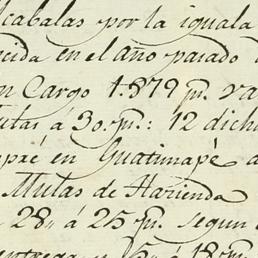 lcabalas por la iguala
cida en el año pasado
n Cargo 1.879 ps. va
utas á 30. ps.: 12 dich
en Guatimapé a
Mulas de Harienda
28,, á 25 ps. segun
entrega